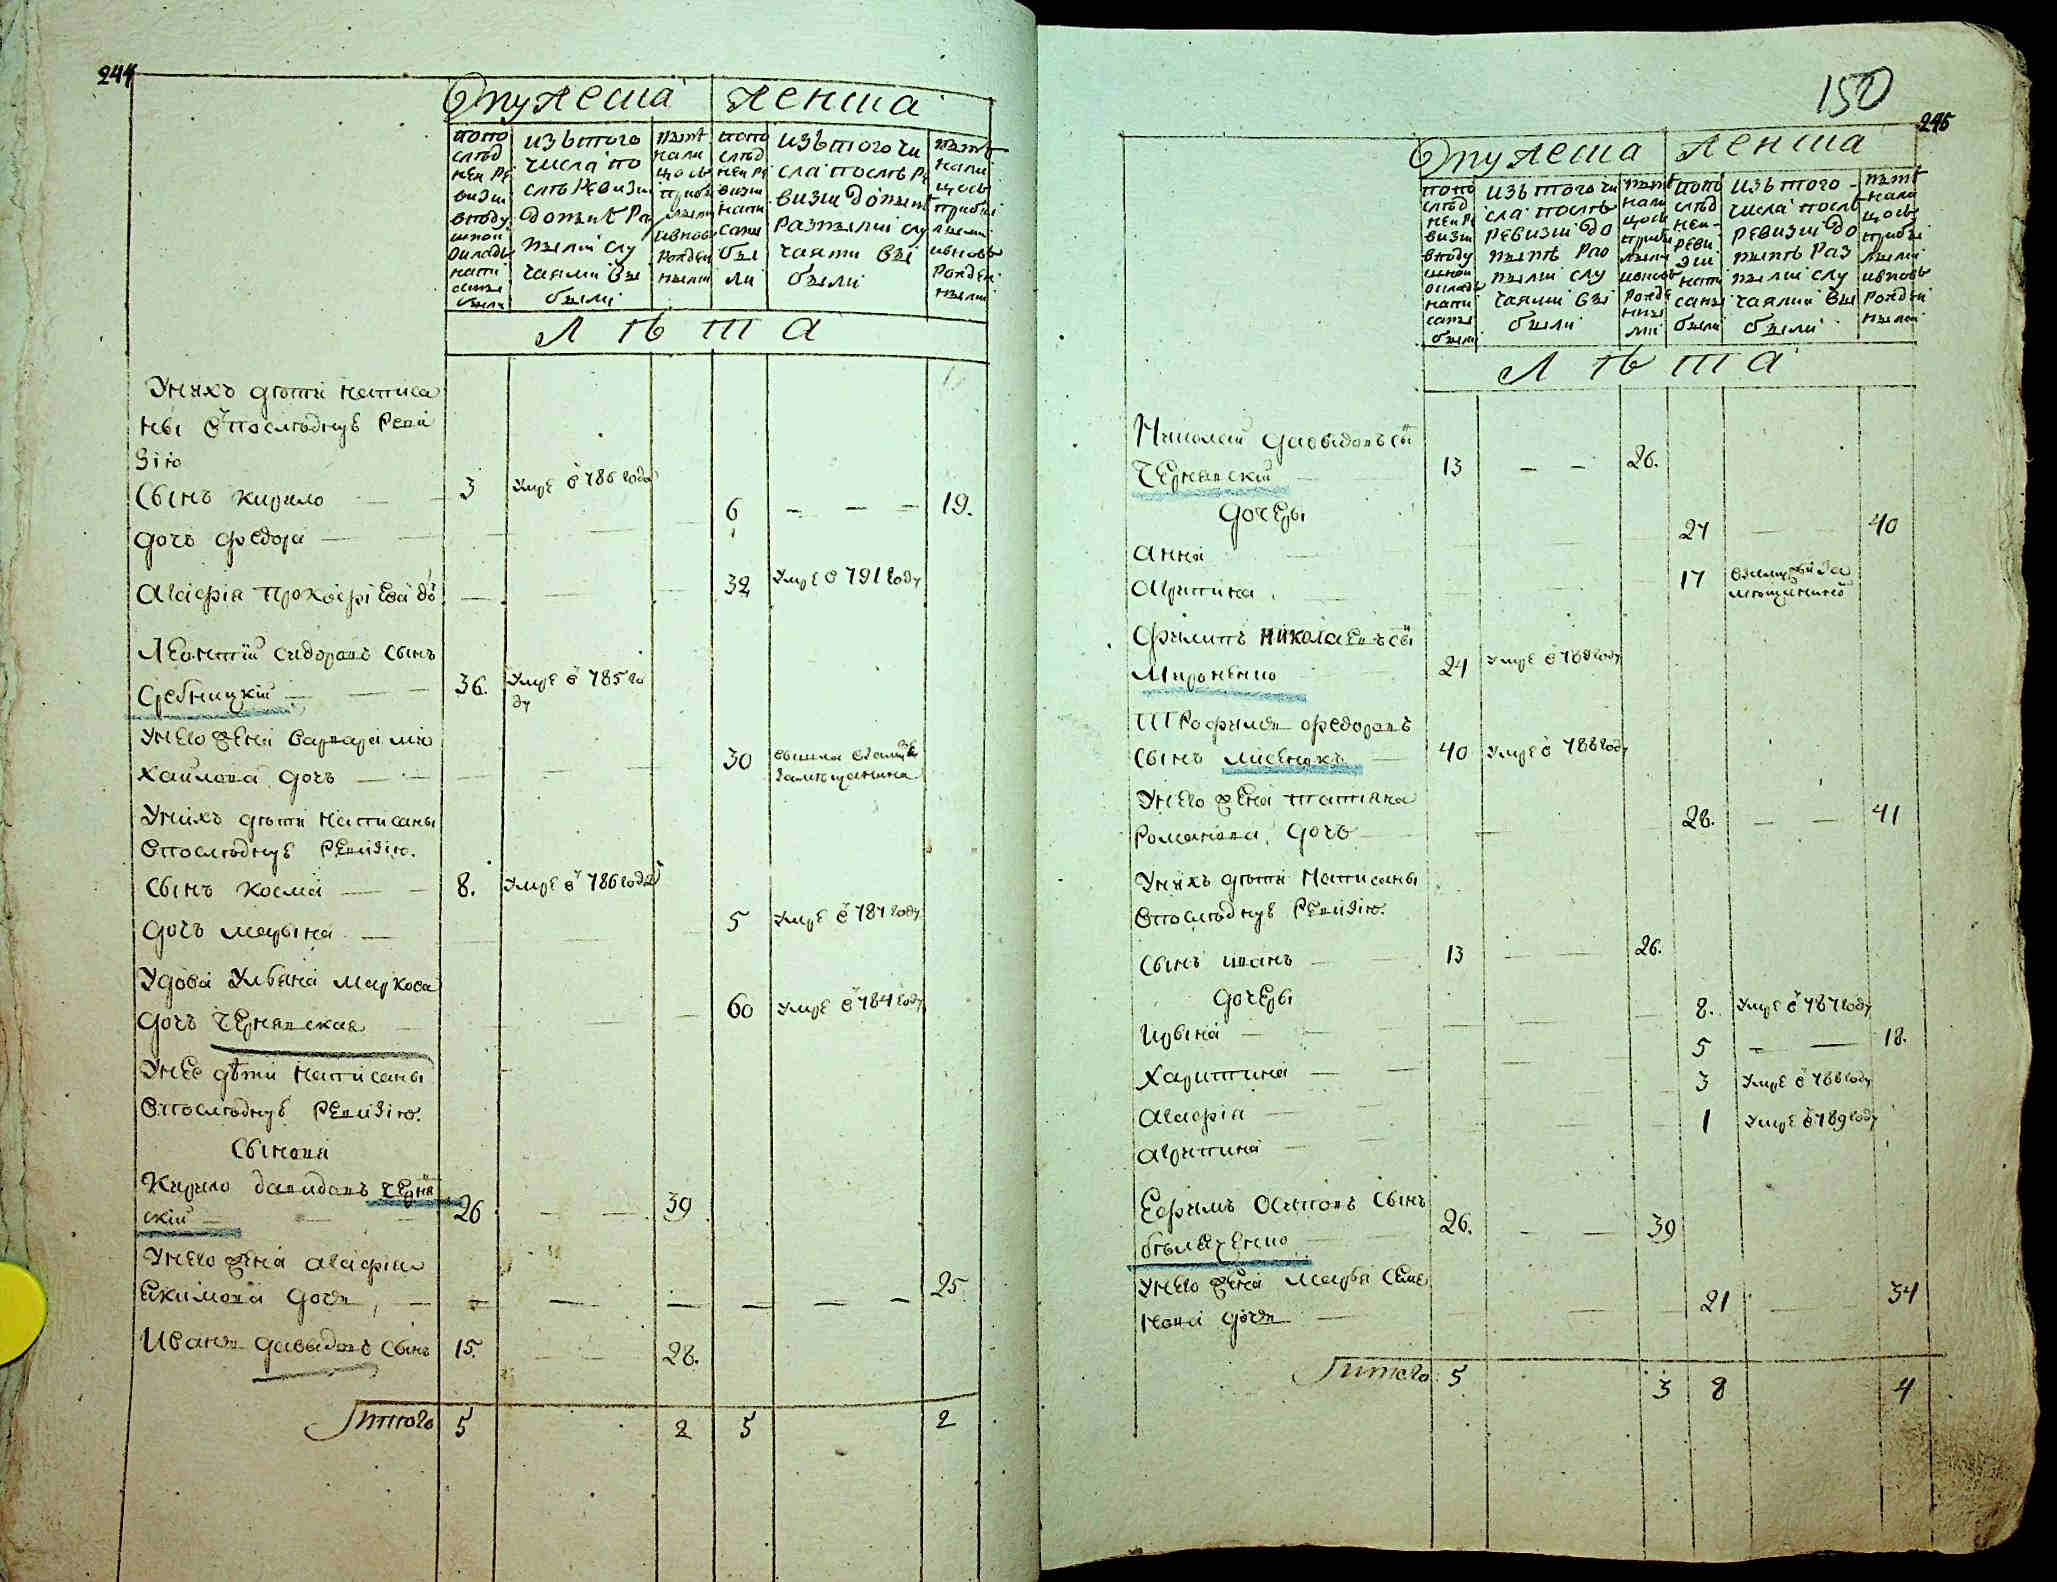 244
мужеска женска
по по
слѣд
ней ре
визии
в подушной
окладъ
напи
саны
были
изъ того
числа по
слѣ ревизии
до ныне ра
зными слу
чаями вы
были
ныне
нали
цо съ
прибы
лыми
и вновь
рожден
ными
по по
слѣд
ней ре
визии
напи
саны
бы
ли
изъ того чи
сла послѣ ре
визии до ныне
разными слу
чаями вы
были
ныне
нали
цо съ
прибы
лыми
и вновь
рожден
ными
Л ѣ т а
У нихъ дѣти написа
ны в последнуѣ реви
зiю
Сынъ Кирило 3 умре в 786 года
дочъ Федора 6 — — — 19.
Агафiя Прокофiева до 32 умре в 791 году
Леонтiй Сидоровъ сынъ
Сребницкiй 36. умре в 785 го
ду
У него жена Варвара Ми
хайлова дочъ 30
У нихъ дѣти написаны
в последнуѣ ревизiю.
Сынъ Косма 8. умре в 786 года
дочъ Марына 5 умре в 787 году
Удова Ульяна Маркова
дочъ Чернявская 60 умре в 784 году
У нее дѣти написаны
в последнуѣ ревизiю.
Сыновя
Кирило Давидовъ Черняв
скiй 26 — — 39
У него жена Агафiя
Екимова дочъ 25
Иванъ Давыдовъ сынъ 15. 28.
Итого 5 2 5 2
150
245
мужеска женска
по по
слѣд
ней ре
визии
в поду
шной
окладъ
напи
саны
были
изъ того чи
сла послѣ
ревизии до
ныне раз
ными слу
чаями вы
были
ныне
нали
цо съ
прибы
лыми
и вновь
рожде
ны
ми
по по
слѣд
ней
реви
зии
напи
саны
были
изъ того
числа послѣ
ревизии до
ныне раз
ными слу
чаями вы
были
ныне
нали
цо съ
прибы
лыми
и вновь
рожден
ными
Л ѣ т а
Николай Давыдовъ сы
Чернявскiй 13 — — 26.
дочеры
Анна 27 40
Агрипина 17
Филипъ Николаевъ сы
Мироненко 24 умре в 789 году
Трофимъ Федоровъ
сынъ Лисенукъ 40 умре в 788 году
У него жена Татияна
Романова дочъ 28. — — 41
У нихъ дѣти написаны
в последнуѣ ревизiю.
Сынъ Иванъ 13 26.
дочеры
Ирына 8. умре в 787 году
Харитина 5 — — 18.
Агафiя 3 умре в 788 году
Агрипина 1 умре в 789 году
Ефимъ Осиповъ сынъ
26. — — 39
У него жена Марья Семе
нова дочъ 21 34
Итого 5 3 8 4